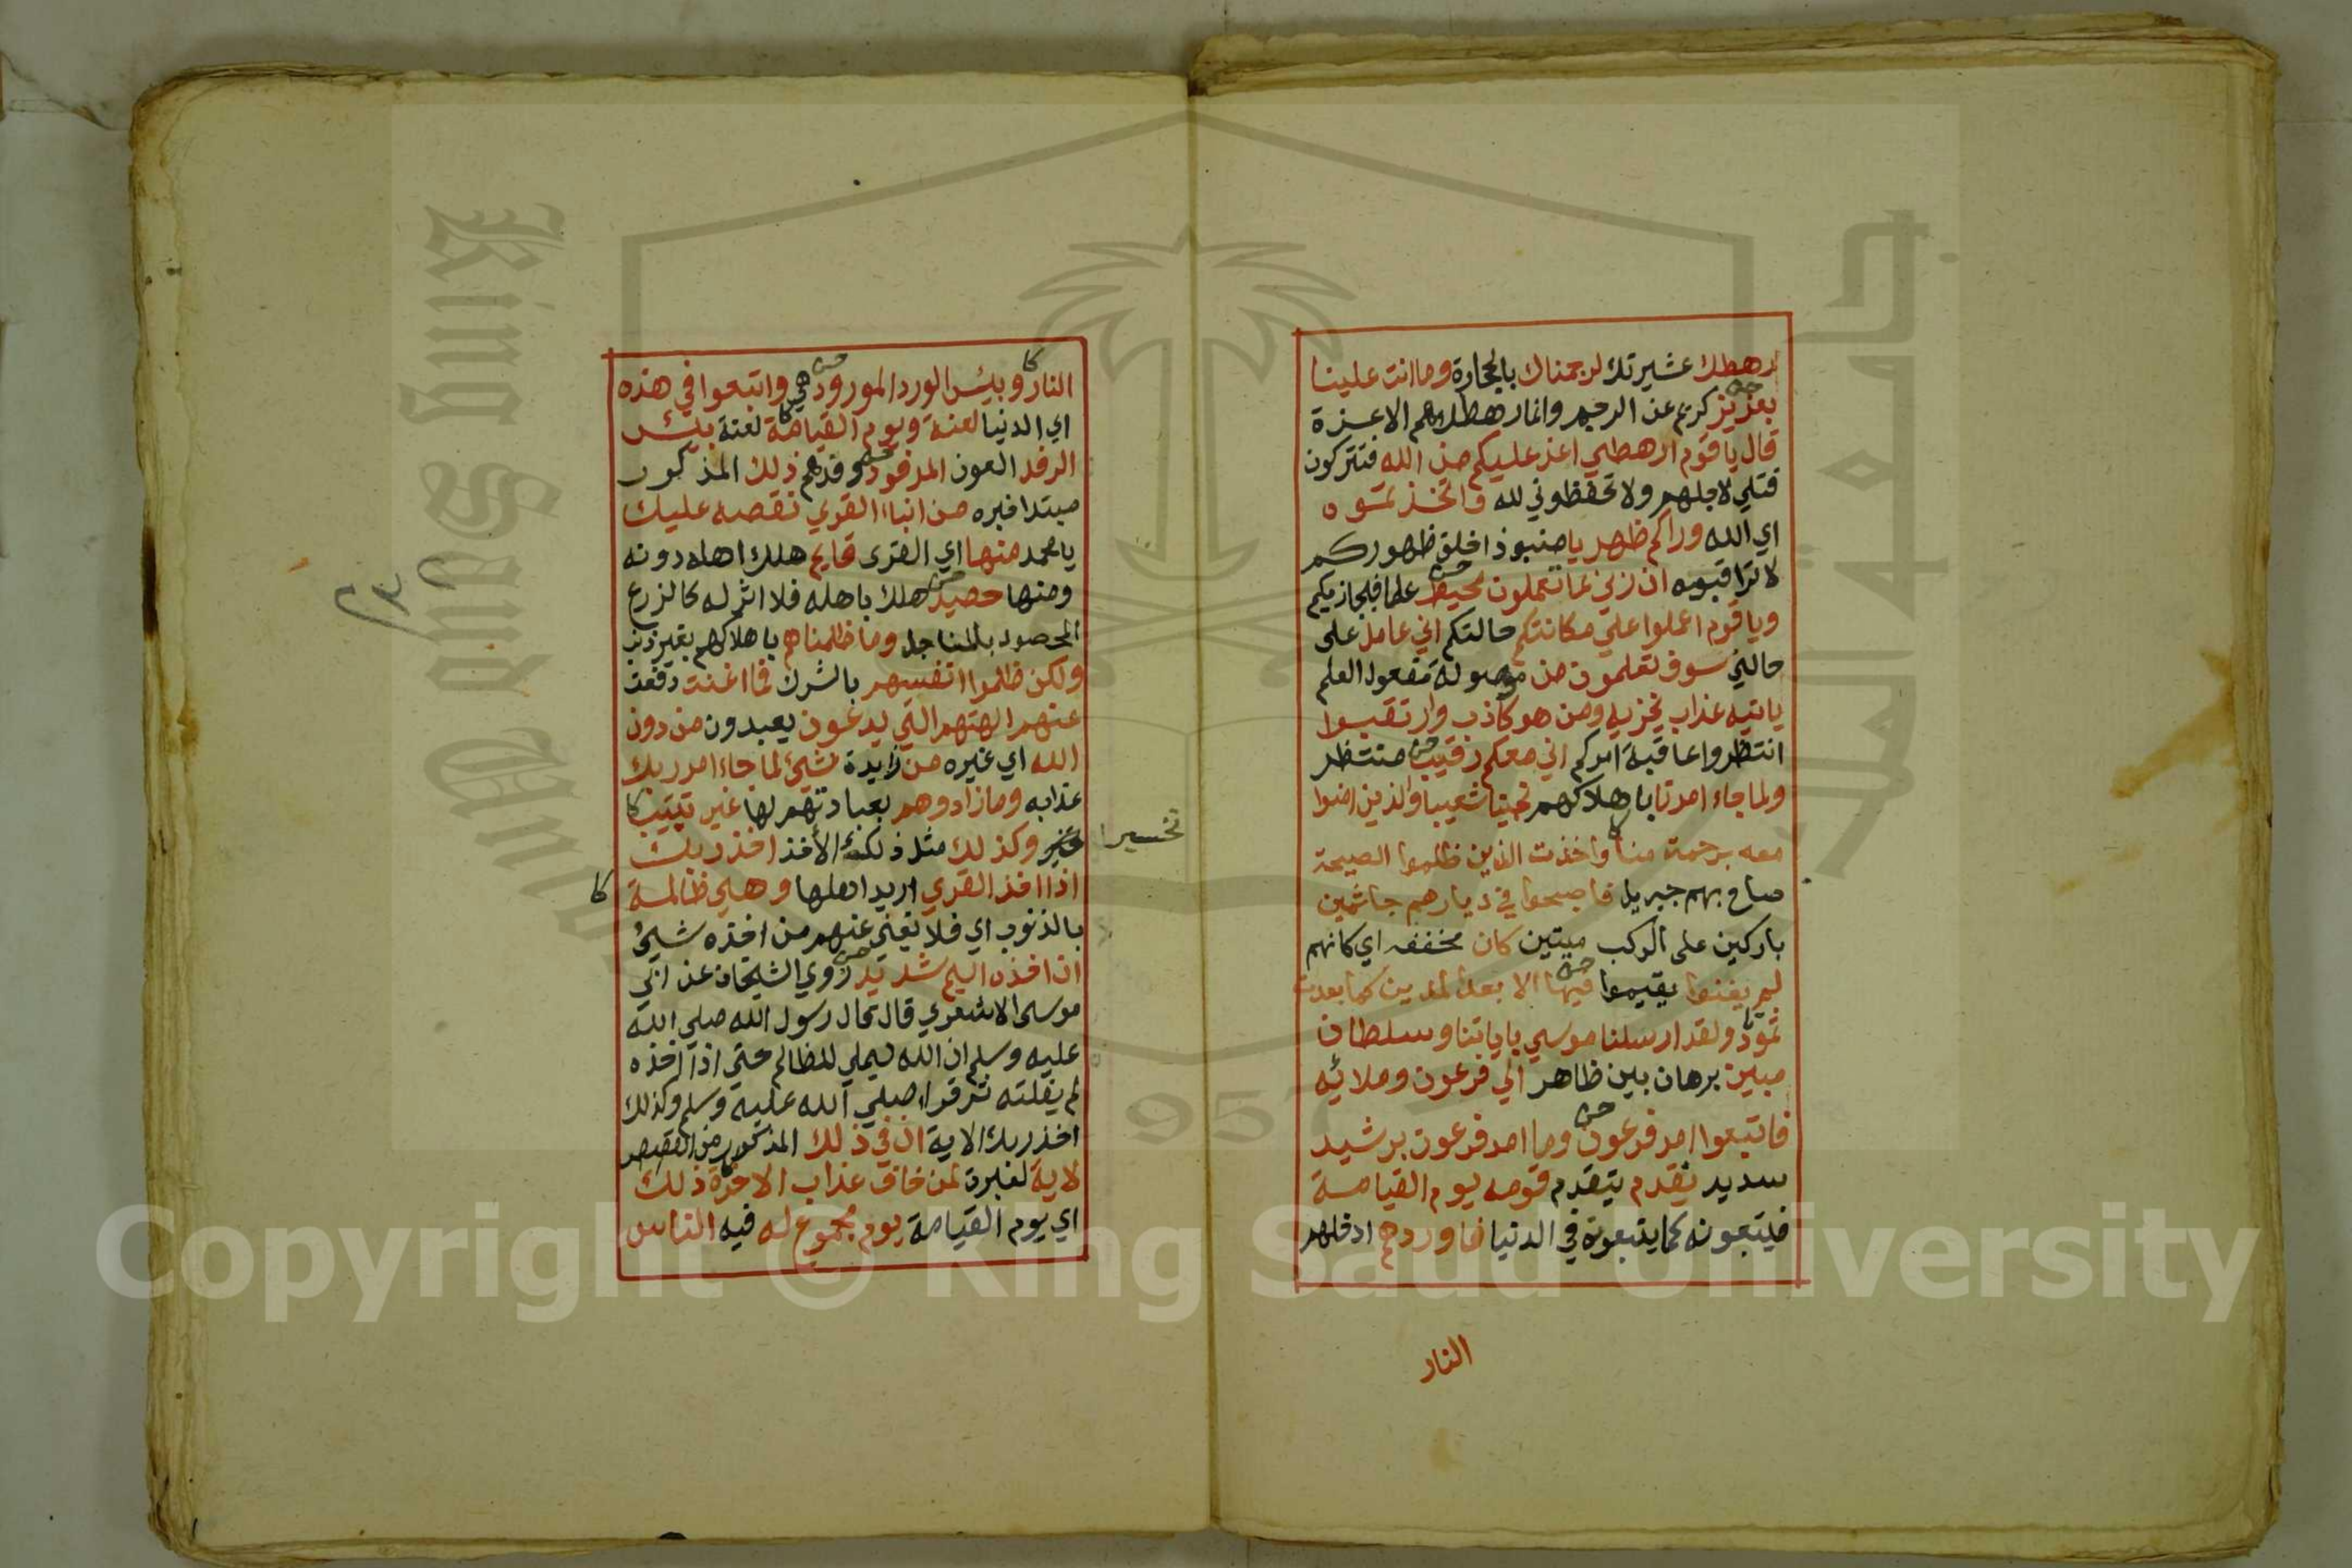 رهطك عشيرتك لرجمناك بالحجارة وما انت علينا
بعزيز كريم عن الرجم وانما رهطك هم الاعزة
قال يا قوم ارهطي اعز عليكم من الله فتتركون
قتلي لاجلهم ولا تحفظوني لله واتخذتموه
اي الله وراكم ظهريا منبوذا خلق ظهوركم
لا تراقبوه ان ربي بما تعملون محيط علما فيجازيكم
ويا قوم اعملوا على مكانتكم حالتكم اني عامل على
حالتي سوف تعلمون من موصولة مفعول العلم
ياتيه عذاب يخزيه ومن هو كاذب وارتقبوا
انتظروا عاقبة امركم اني معكم رقيب منتظر
ولما جاء امرنا باهلاكهم نجينا شعيبا والذين امنوا
معه برحمة منا واخذت الذين ظلموا الصيحة
صاح بهم جبريل فاصبحوا في ديارهم جاثمين
باركين على الركب ميتين كان مخففه اي كانهم
لم يغنوا يقيموا فيها الا بعدا لمدين كما بعدت
ثمود ولقد ارسلنا موسي باياتنا وسلطان
مبين برهان بين ظاهر الي فرعون وملائه
فاتبعوا امر فرعون وما امر فرعون برشيد
سديد يقدم يتقدم قومه يوم القيامة
فيتبعونه كما يتبعوه في الدنيا فاوردهم ادخلهم
النار
النار وبئس الورد المورود هي واتبعوا في هذه
اي الدنيا لعنة ويوم القيامة لعنة بئس
الرفد العون المرفود وفدهم ذلك المذكور
مبتدا خبره من انباء القري نقصه عليك
يا محمد منها اي القرى قايم هلك اهله دونه
ومنها حصيد هلك باهله فلا اثر له كالزرع
المحصود بالمناجل وما ظلمناهم باهلاكهم بغير ذنب
ولكن ظلموا انفسهم بالشرك فما اغنت دفعت
عنهم الهتهم التي يدعون يعبدون من دون
الله اي غيره من زايدة شيئ لما جاء امر ربك
عذابه وما زادوهم بعبادتهم لها غير تتبيب
تخسير
وكذلك مثل ذلك الأخذ اخذ ربك
اذا اخذ القري اريد اهلها وهي ظالمة
بالذنوب اي فلا يغني عنهم من اخذه شيئ
ان اخذه اليم شديد روي الشيخان عن ابي
موسى الاشعري قال قال رسول الله صلي الله
عليه وسلم ان الله ليملي للظالم حتى اذا اخذه
لم يفلته ثم قرا صلي الله عليه وسلم وكذلك
اخذ ربك الاية ان في ذلك المذكور من القصص
لاية لعبرة لمن خاف عذاب الاخرة ذلك
اي يوم القيامة يوم مجموع له فيه الناس
Copyright © King Saud University
King Saud University
جامعة الملك
1957